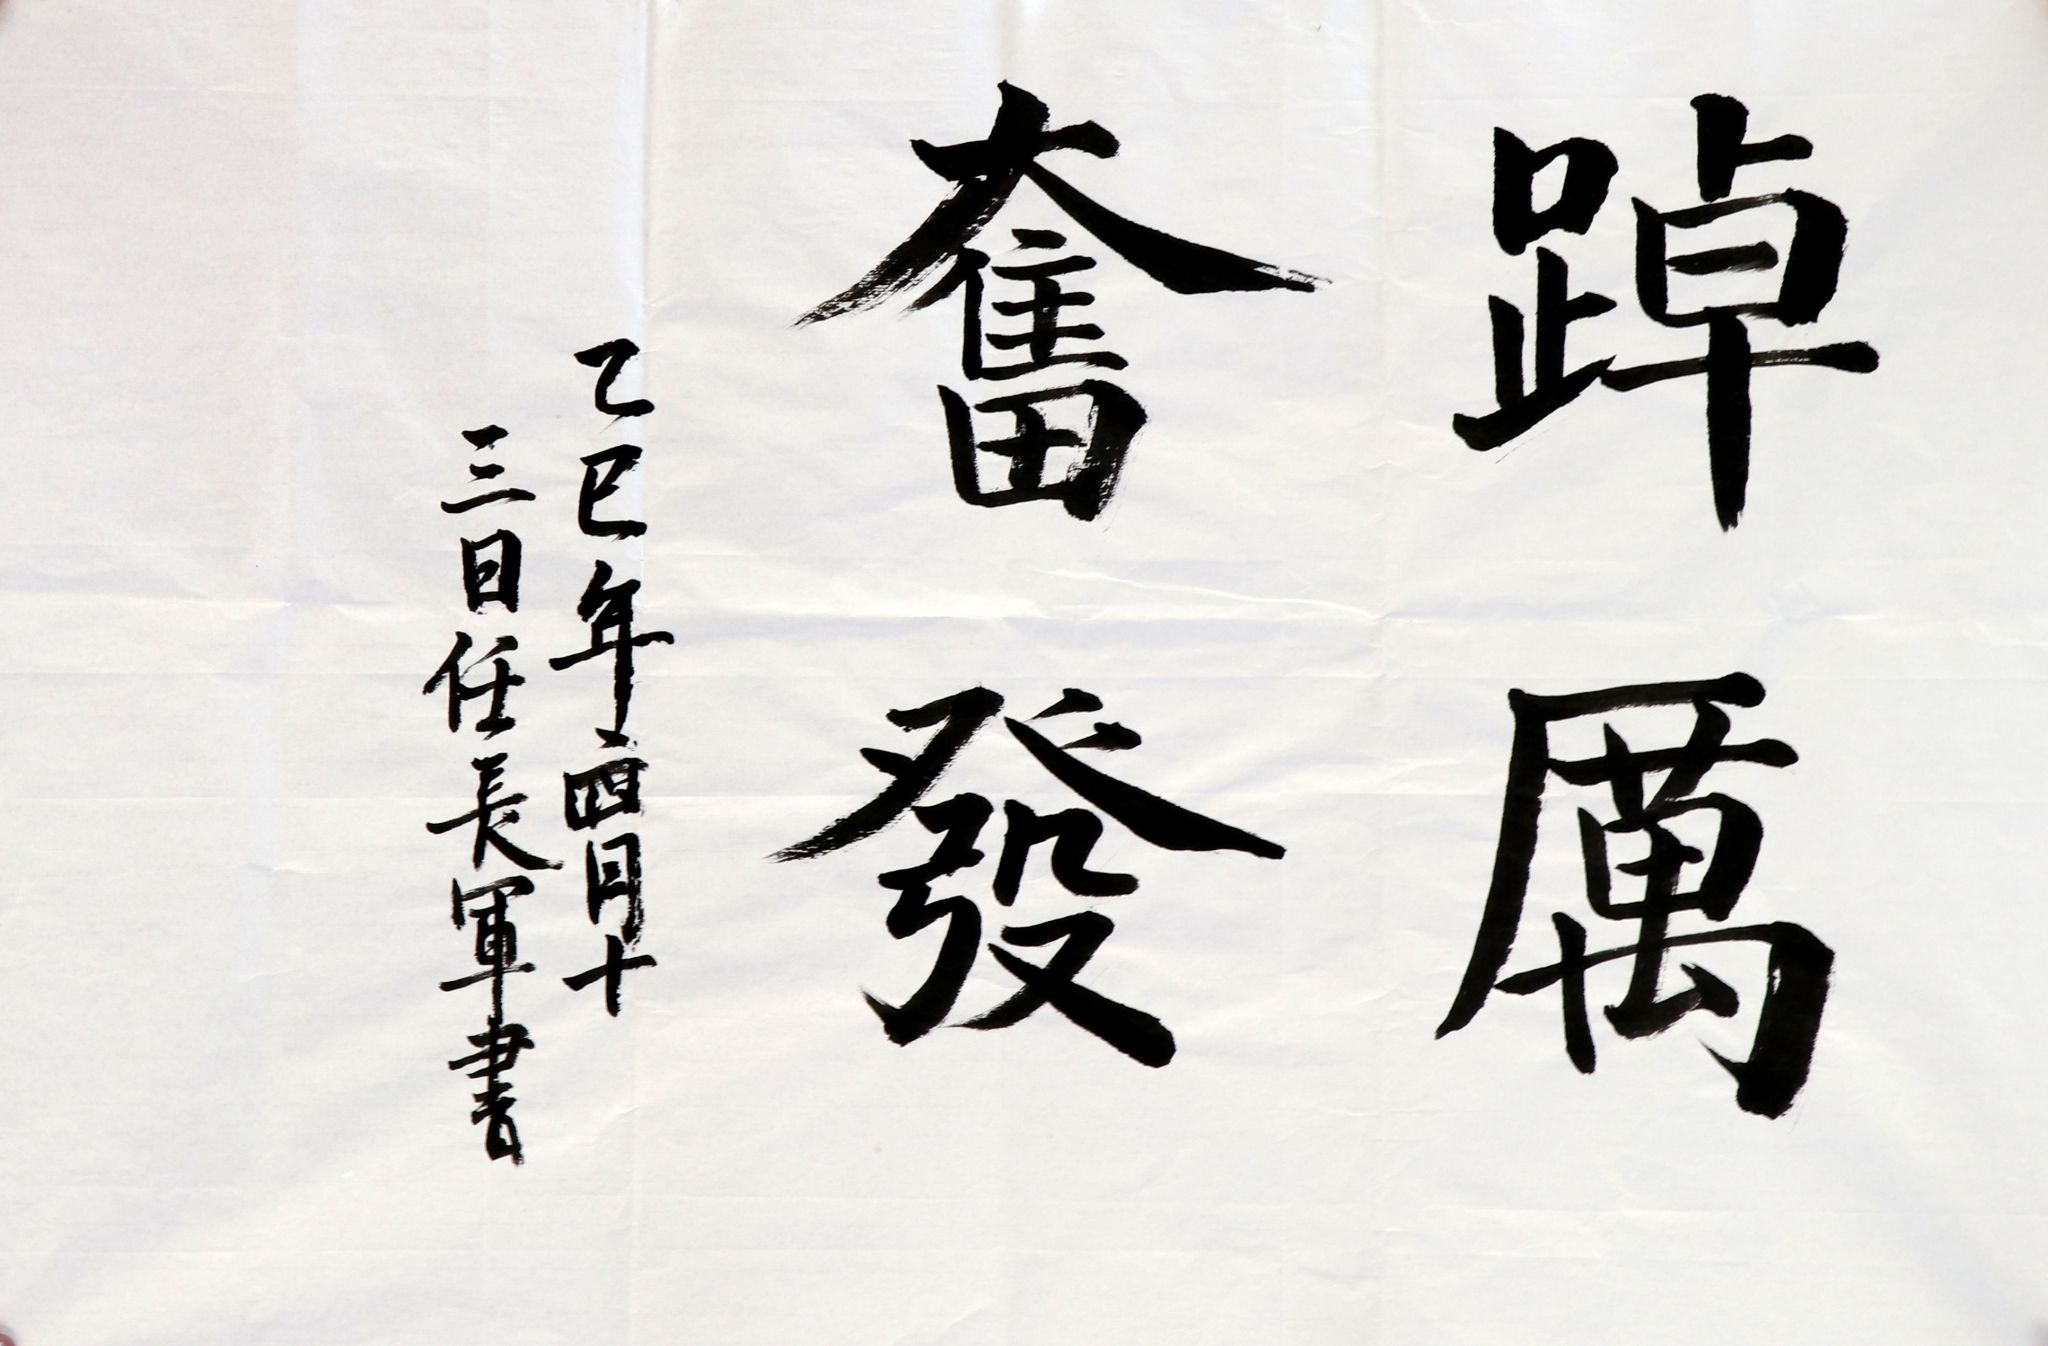 踔厲
奮發
乙巳年四月十
三日任長軍書